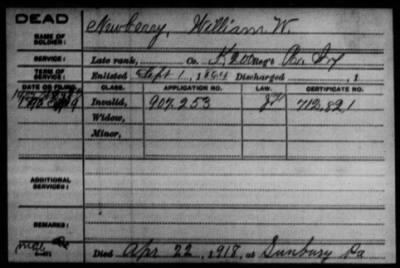 DEAD
NAME OF SOLDIER: Newberry, William W.
SERVICE: Late rank, Co. K, Reg't
TERM OF SERVICE: Enlisted Sept 1, 1864 Discharged , 1
DATE OF FILING. CLASS. APPLICATION NO. LAW. CERTIFICATE NO.
Invalid, 907,253 712,821
Widow,
Minor,
ADDITIONAL SERVICES:
REMARKS:
Died Apr 22, 1918, at Sunbury Pa